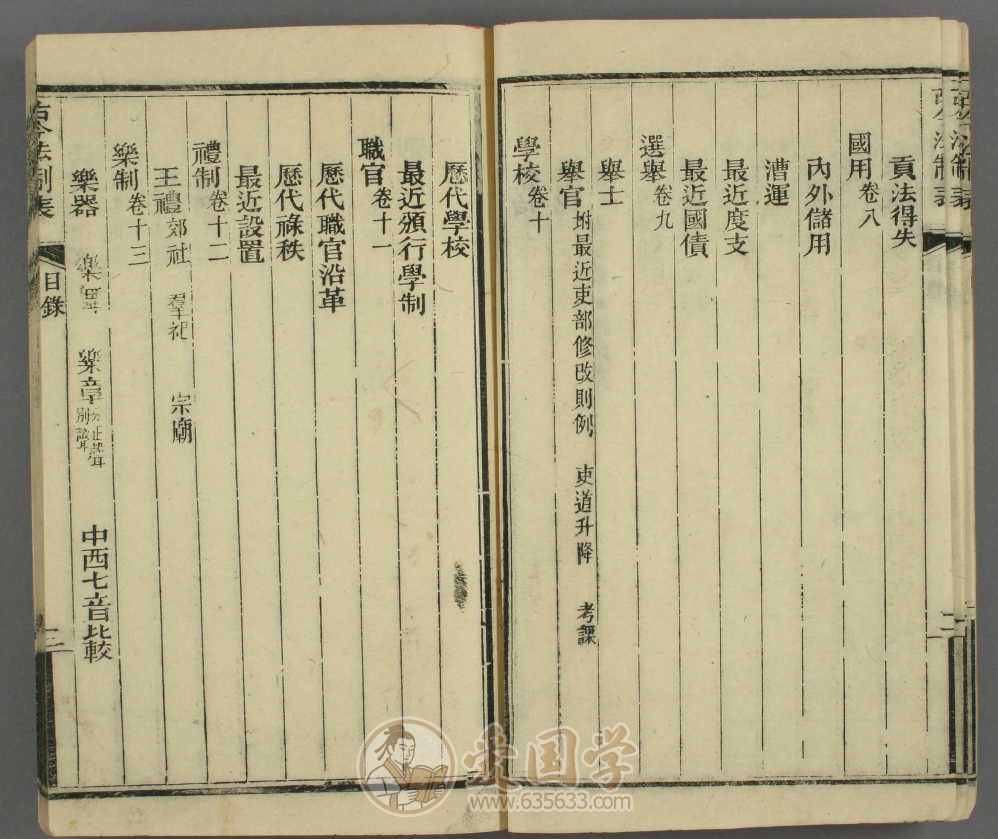 古今法制表
貢法得失
國用 卷八
內外儲用
漕運
最近度支
最近國債
選舉 卷九
舉士
舉官 坿最近吏部修改則例 吏道升降 考課
學校 卷十
歷代學校
最近頒行學制
職官 卷十一
歷代職官沿革
歷代祿秩
最近設置
禮制 卷十二
王禮 郊社 羣祀 宗廟
樂制 卷十三
樂器 樂章 中西七音比較
古今法制表 目錄 三
愛国学
www.635633.com